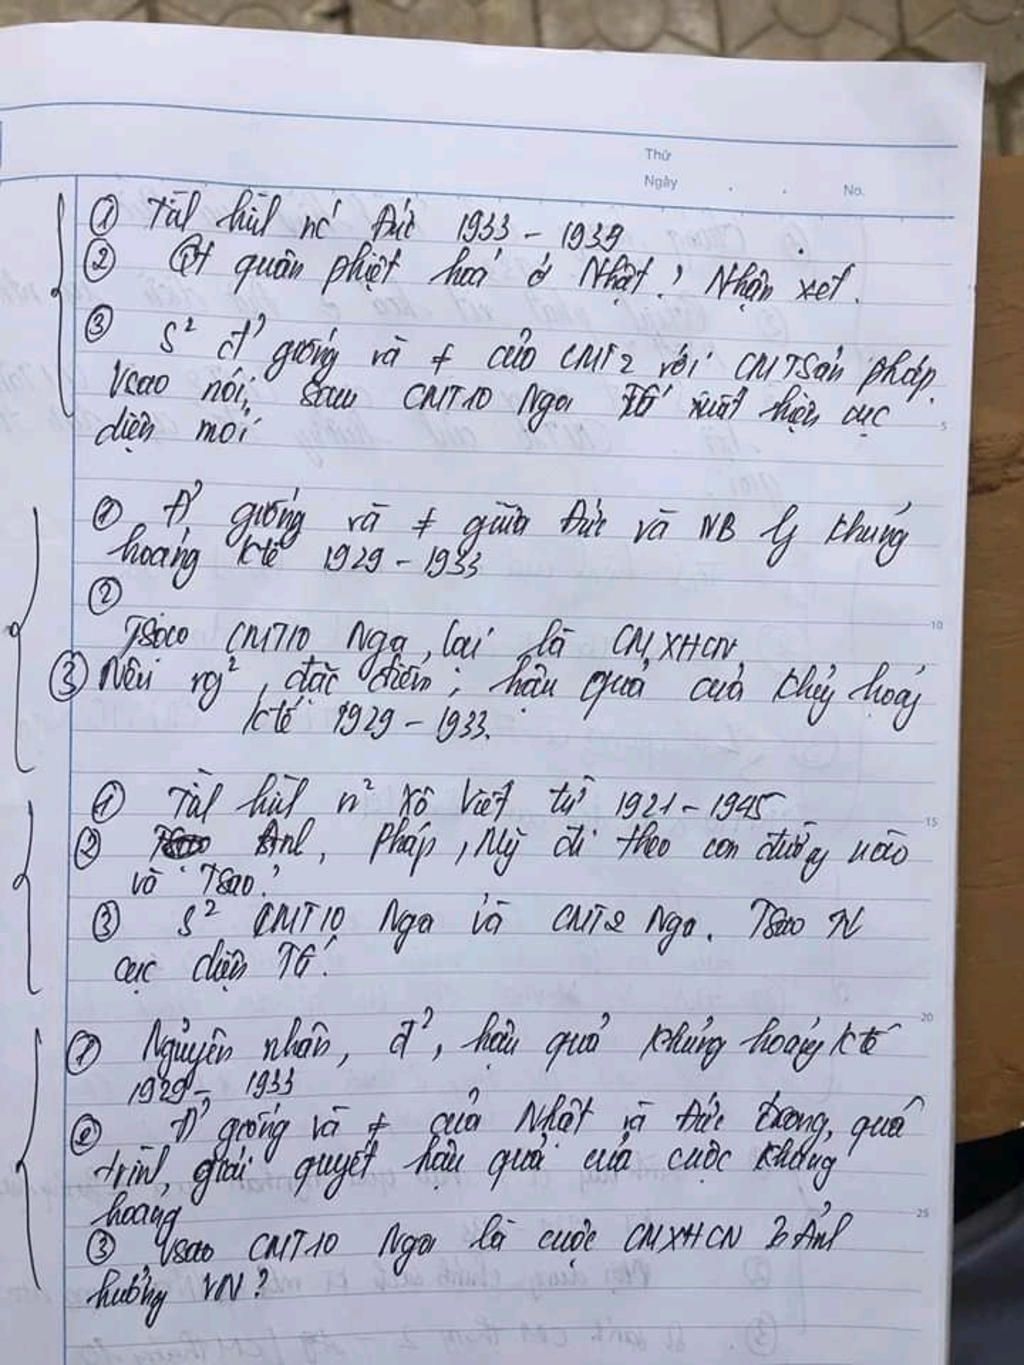 Thứ
Ngày . . No.
① Tàl hìl nc' Đức 1933 - 1939
② Qt quân phiệt hoá ở Nhật? Nhận xét.
③ S² đ² giống và ≠ của CMT2 với CMTSản pháp.
Vsao nói, sau CMT10 Nga TG xuất hiện cục
diện mới
5
① Đ² giống và ≠ giữa Đức và NB khủng
hoảng Ktế 1929 - 1933
②
Tsao CMT10 Nga lại là CMXHCN
10
③ Nêu đặc điểm, hậu quả của hoảng
Ktế 1929 - 1933.
① Tàl hìl n² Xô Viết từ 1921 - 1945
15
② Anl, Pháp, Mỹ đi theo con đường nào
và Tsao?
③ S² CMT10 Nga và CMT2 Nga. Tsao
cục diện TG.
20
① Nguyên nhân, đ², hậu quả khủng hoảng Ktế
1929 - 1933
② Đ² giống và ≠ của Nhật và Đức trong quá
trìnl giải quyết hậu quả của cuộc khủng
hoảng
25
③ Vsao CMT10 Nga là cuộc CMXHCN Ảnl
hưởng VN?